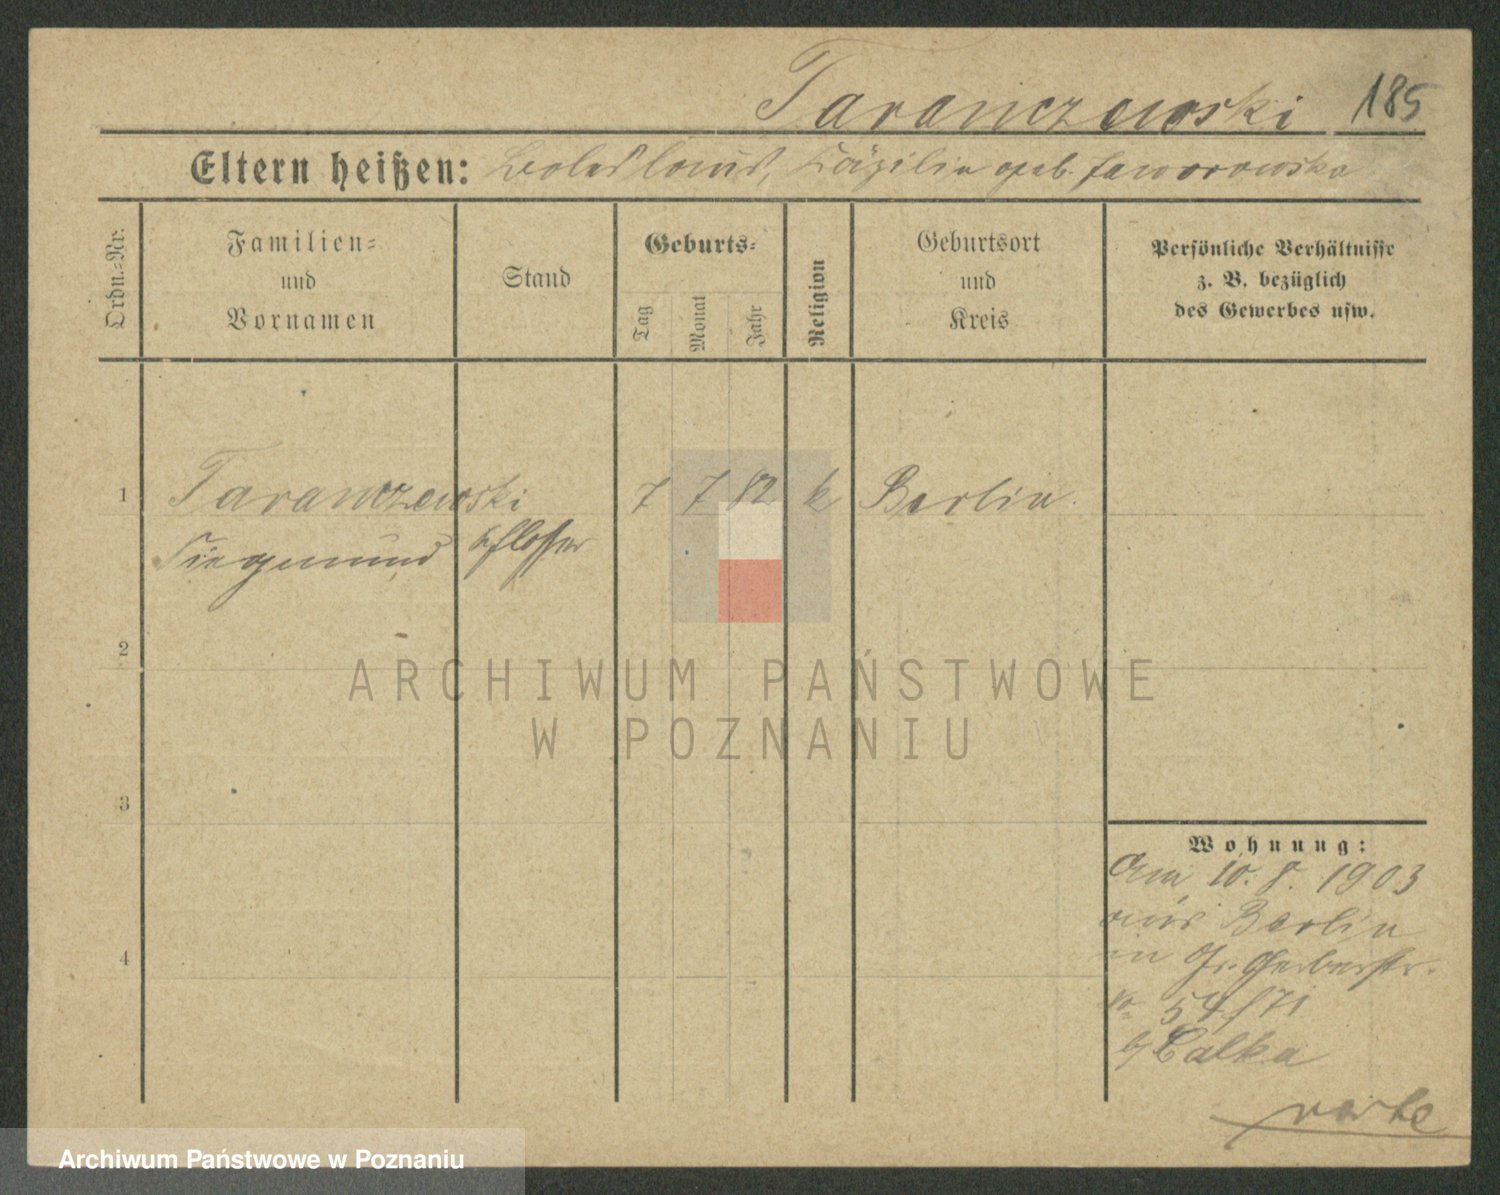 Taranczewski 185
Eltern heißen: Boleslaus, Cäzilia geb. Jaworowska
Ordn.-Nr.
Familien-
und
Vornamen
Stand
Geburts-
Tag
Monat
Jahr
Religion
Geburtsort
und
Kreis
Persönliche Verhältnisse
z. B. bezüglich
des Gewerbes usw.
1 Taranczewski 7 7 82 k Berlin.
Siegmund Schlosser
2
ARCHIWUM PAŃSTWOWE
W POZNANIU
3
Wohnung:
Am 10. 8. 1903
aus Berlin
in Gr. Gerberstr.
No 54/71
b/ Calka
4
verte
Archiwum Państwowe w Poznaniu